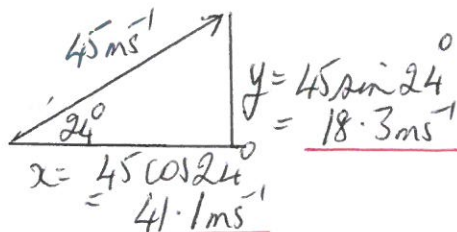 45ms⁻¹
24°
y = 45 sin 24°
= 18.3ms⁻¹
x = 45 cos 24°
= 41.1ms⁻¹